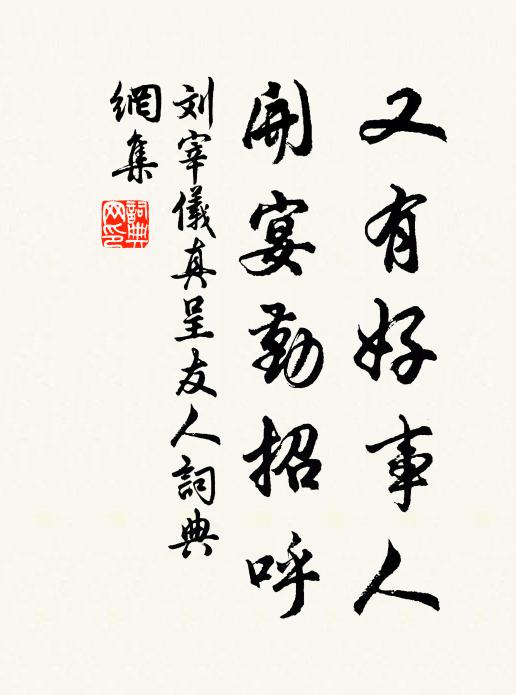 又有好事人
開宴勤招呼
刘宰儀真呈友人詞典
網集
詞典网印